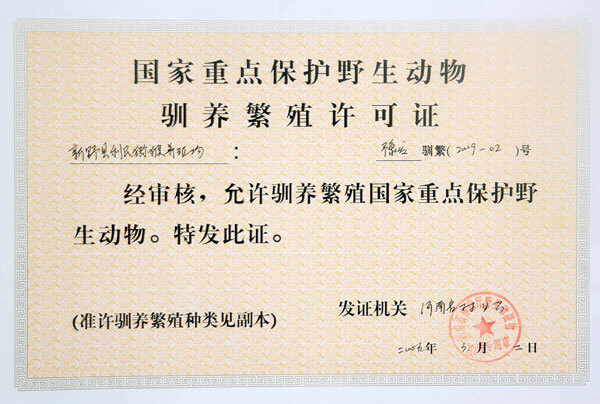 国家重点保护野生动物
驯养繁殖许可证
新野县利民猕猴养殖场：
驯繁(2009-02)号
经审核，允许驯养繁殖国家重点保护野
生动物。特发此证。
发证机关 河南省林业厅
(准许驯养繁殖种类见副本)
二〇〇九年 月 二日